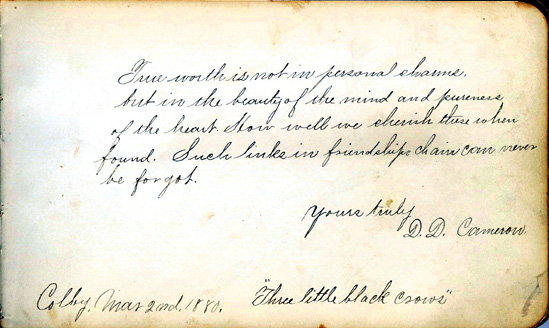 True worth is not in personal charms,
but in the beauty of the mind and pureness
of the heart. How well we cherish these when
found. Such links in friendships chain can never
be forgot.
Yours truly
D. D. Cameron.
Colby, Mar 2nd, 1880. "Three little black crows"